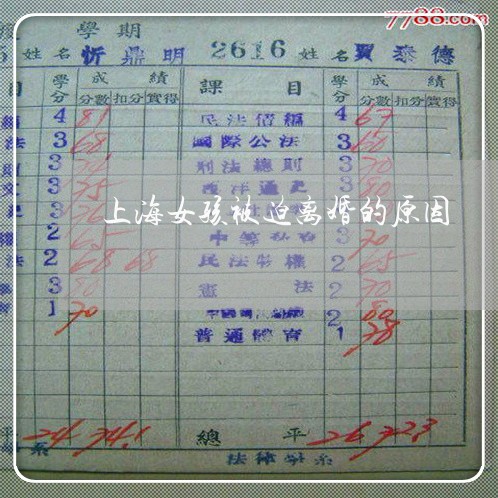 7788.com
學期
姓名 忻鼎明 2616 姓名 賈泰德
目 學分 成績 課目 學分 成績
分數 扣分 實得 分數 扣分 實得
4 81 民法債編 4 67
法 3 68 國際公法 3 60
3 刑法總則 3 70
3 75 西洋通史 3 80
3
上海女孩被迫离婚的原因
2 65 3 70
法 2 68 68 民法物權 2 65
3 80 憲法 2 70
1 70 2 80
普通體育 1 78
平 24 74.1 總平 26 72.3
系 法律學系